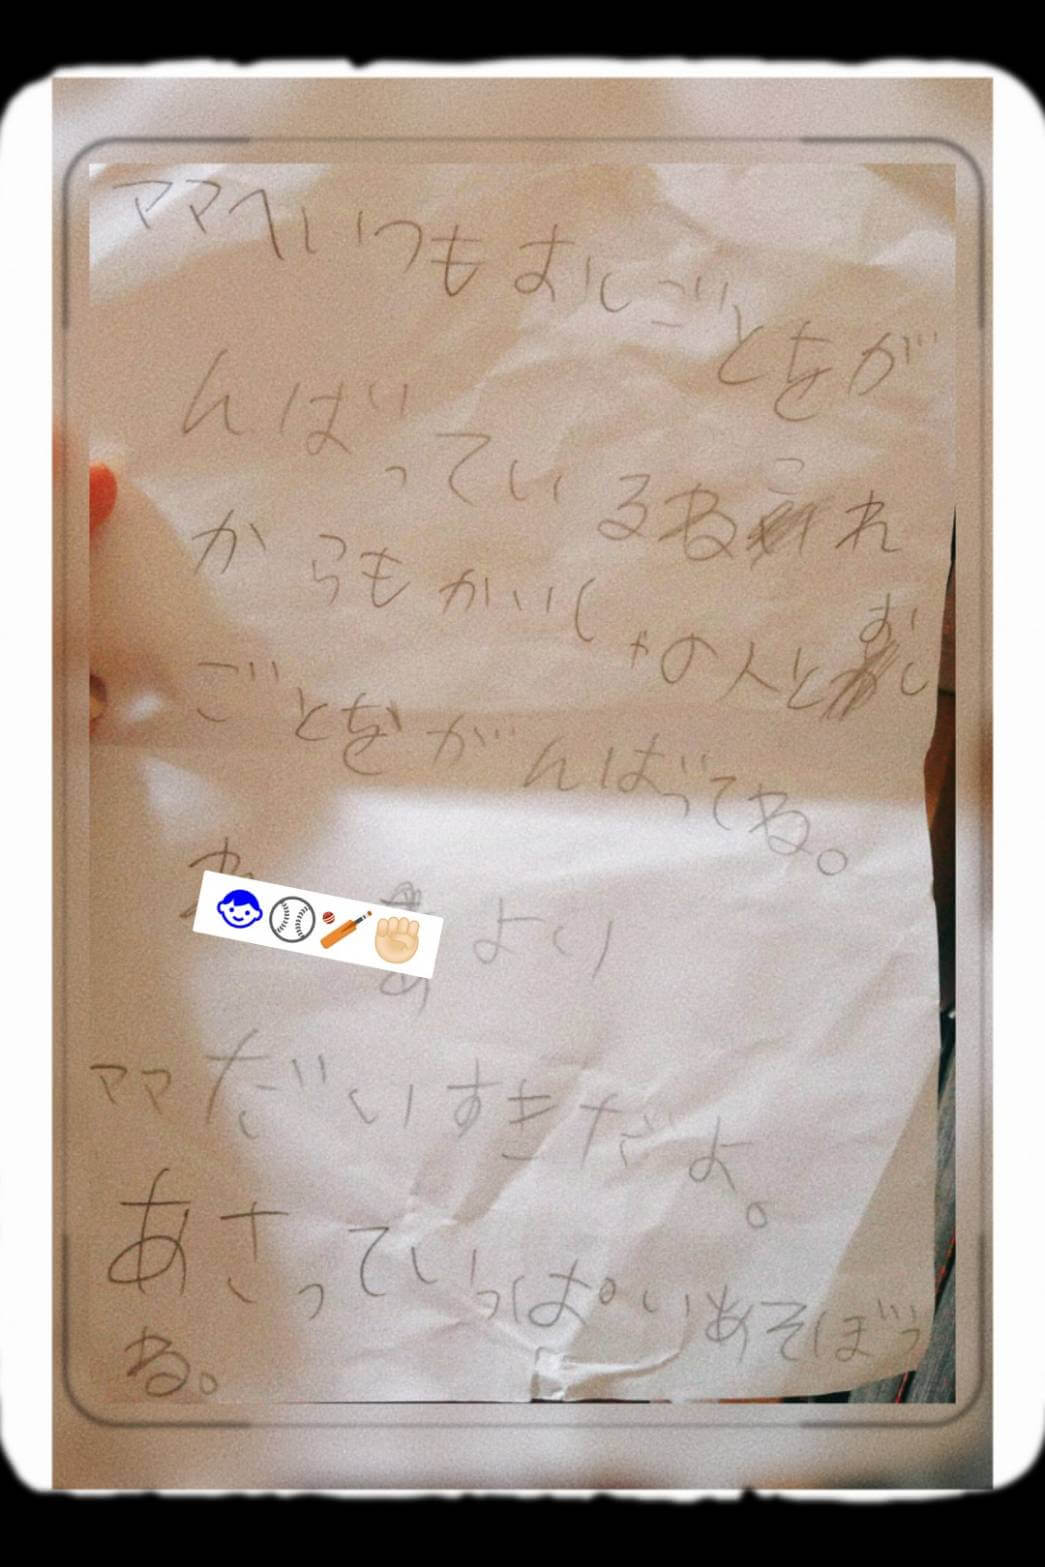 ママへいつもおしごとをが
んばっているねこれ
からもかいしゃの人とおし
ごとをがんばってね。
より
ママだいすきだよ。
あさっていっぱいあそぼう
ね。